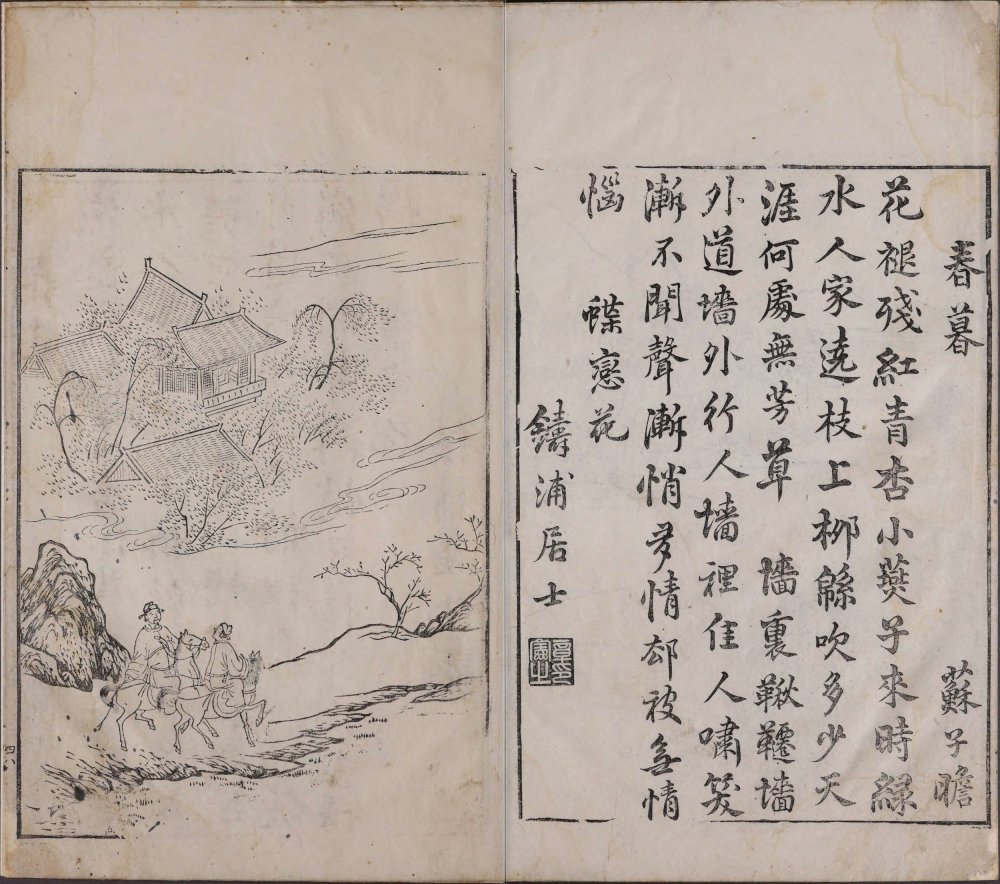 春暮 蘇子瞻
花褪殘紅青杏小燕子來時綠
水人家遶枝上柳緜吹多少天
涯何處無芳草 墻裏鞦韆墻
外道墻外行人墻裡佳人嘯笑
漸不聞聲漸悄多情却被無情
惱 蝶戀花
鑄浦居士
四八